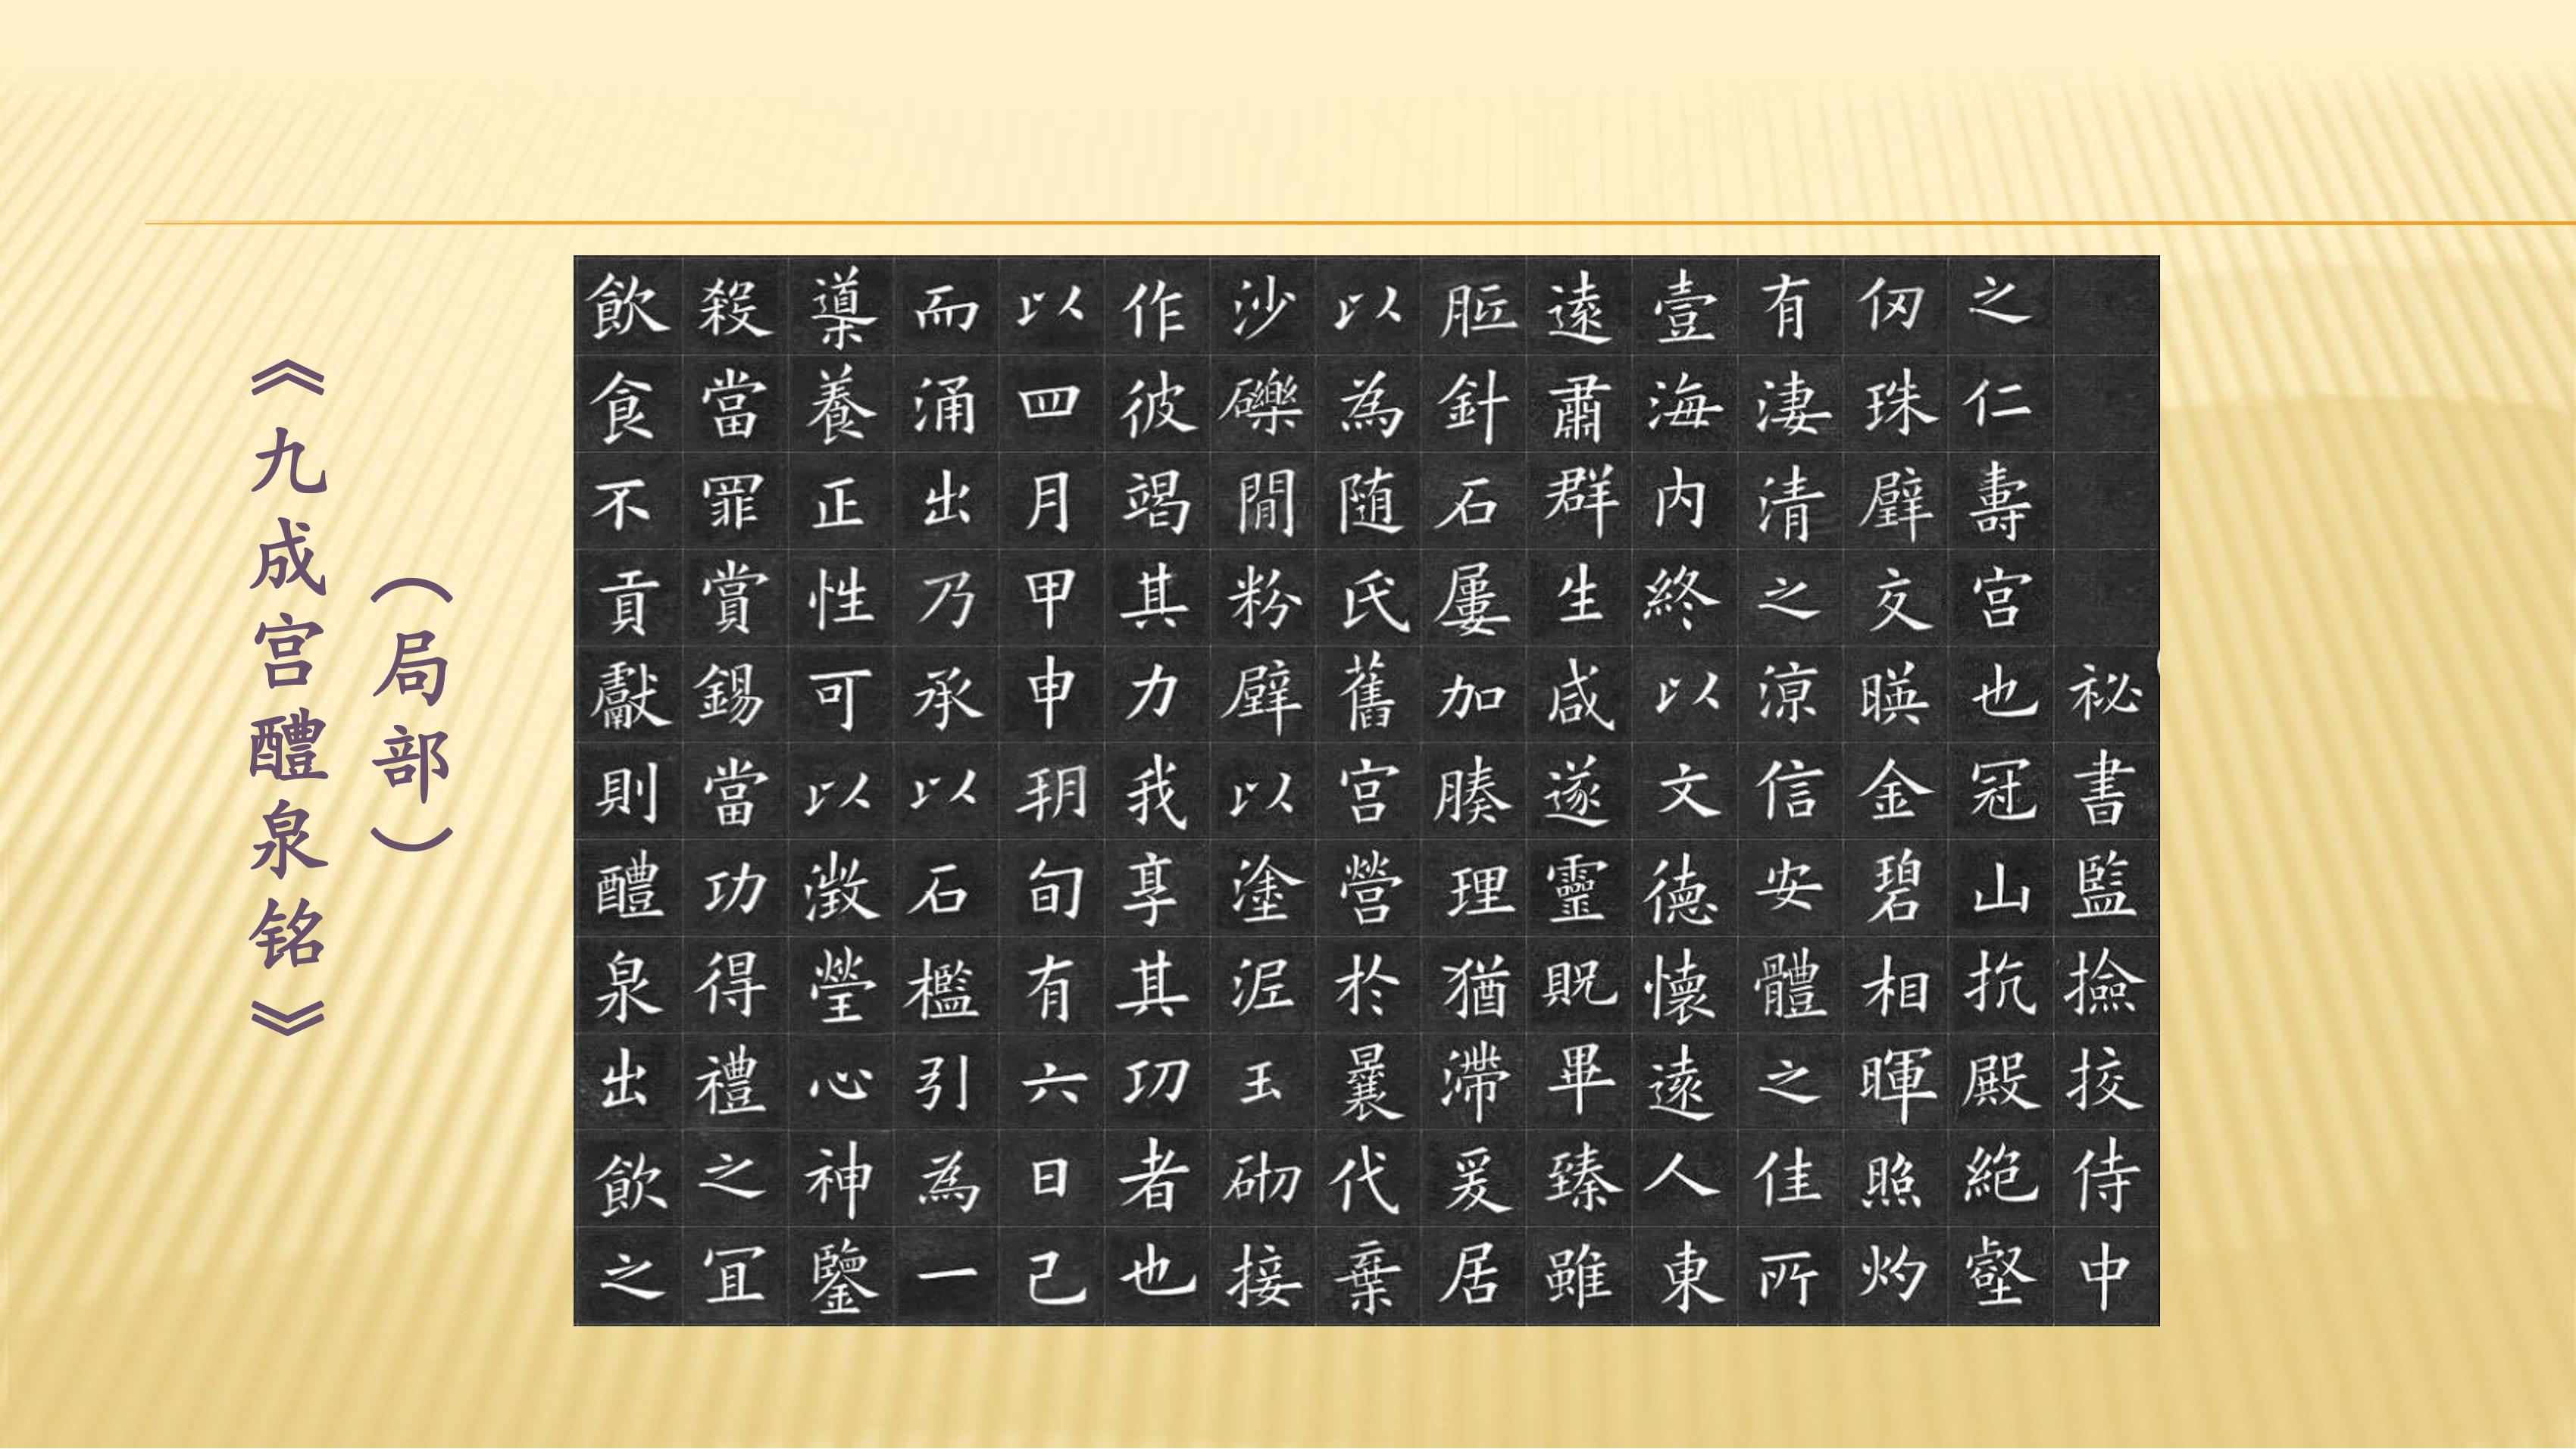 《九成宫醴泉铭》
（局部）
祕書監撿挍侍中
之仁壽宫也冠山抗殿絶壑
仞珠璧交暎金碧相暉照灼
有淒清之涼信安體之佳所
壹海内終以文德懷遠人東
遠肅群生咸遂靈貺畢臻雖
胝針石屢加腠理猶滯爰居
以為随氏舊宫營於曩代棄
沙礫閒粉壁以塗泥玉砌接
作彼竭其力我享其功者也
以四月甲申朔旬有六日己
而涌出乃承以石檻引為一
導養正性可以澂瑩心神鑒
殺當罪賞錫當功得禮之宜
飲食不貢獻則醴泉出飲之